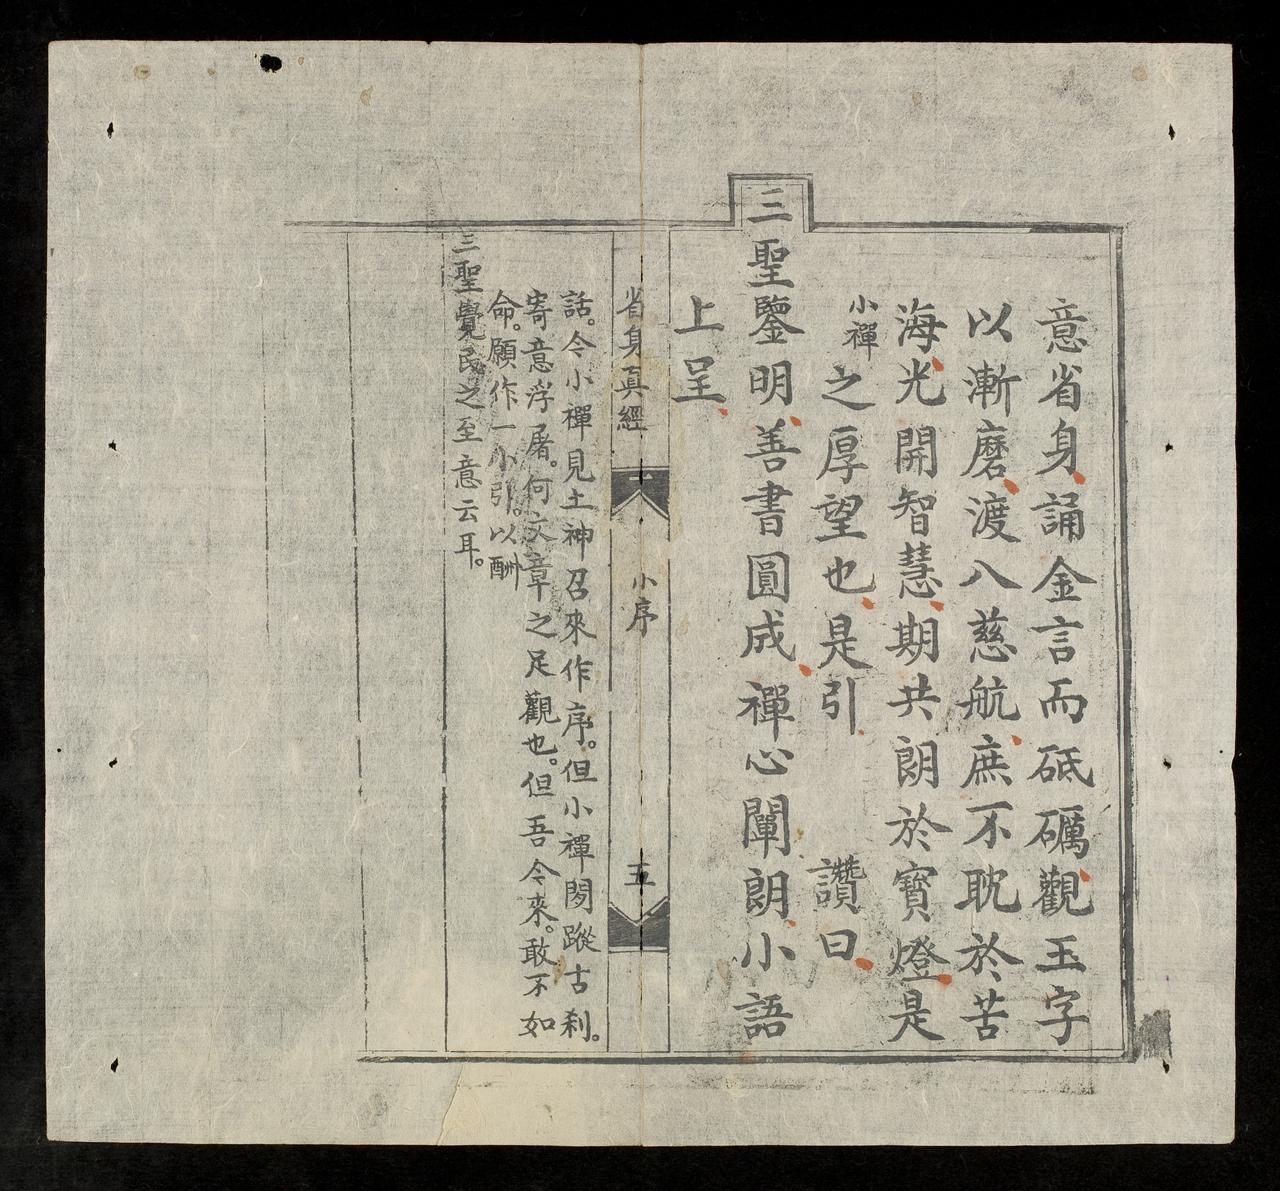 意省身誦金言而砥礪觀玉字
以漸磨渡八慈航庶不耽於苦
海光開智慧期共朗於寶燈是
小禪之厚望也是引 讚曰
三聖鑒明善書圓成禪心闡朗小語
上呈
省身眞經 小序 五
話。令小禪見土神召來作序。但小禪閱蹤古刹。
寄意浮屠。何文章之足觀也。但吾令來。敢不如
命。願作一小引。以酬
三聖覺民之至意云耳。